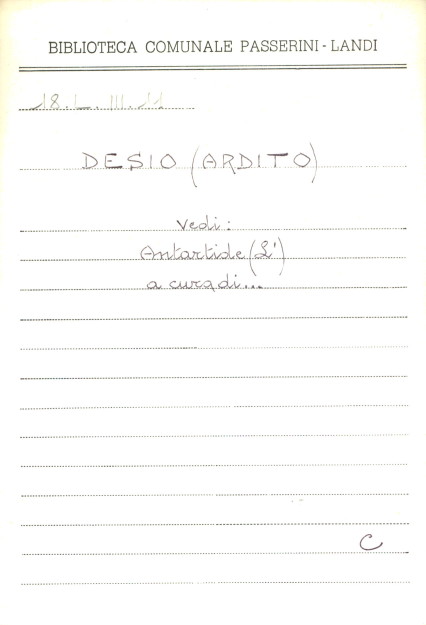 BIBLIOTECA COMUNALE PASSERINI - LANDI
18.L.III.11
DESIO (ARDITO)
Vedi:
Antartide (L')
a cura di...
C